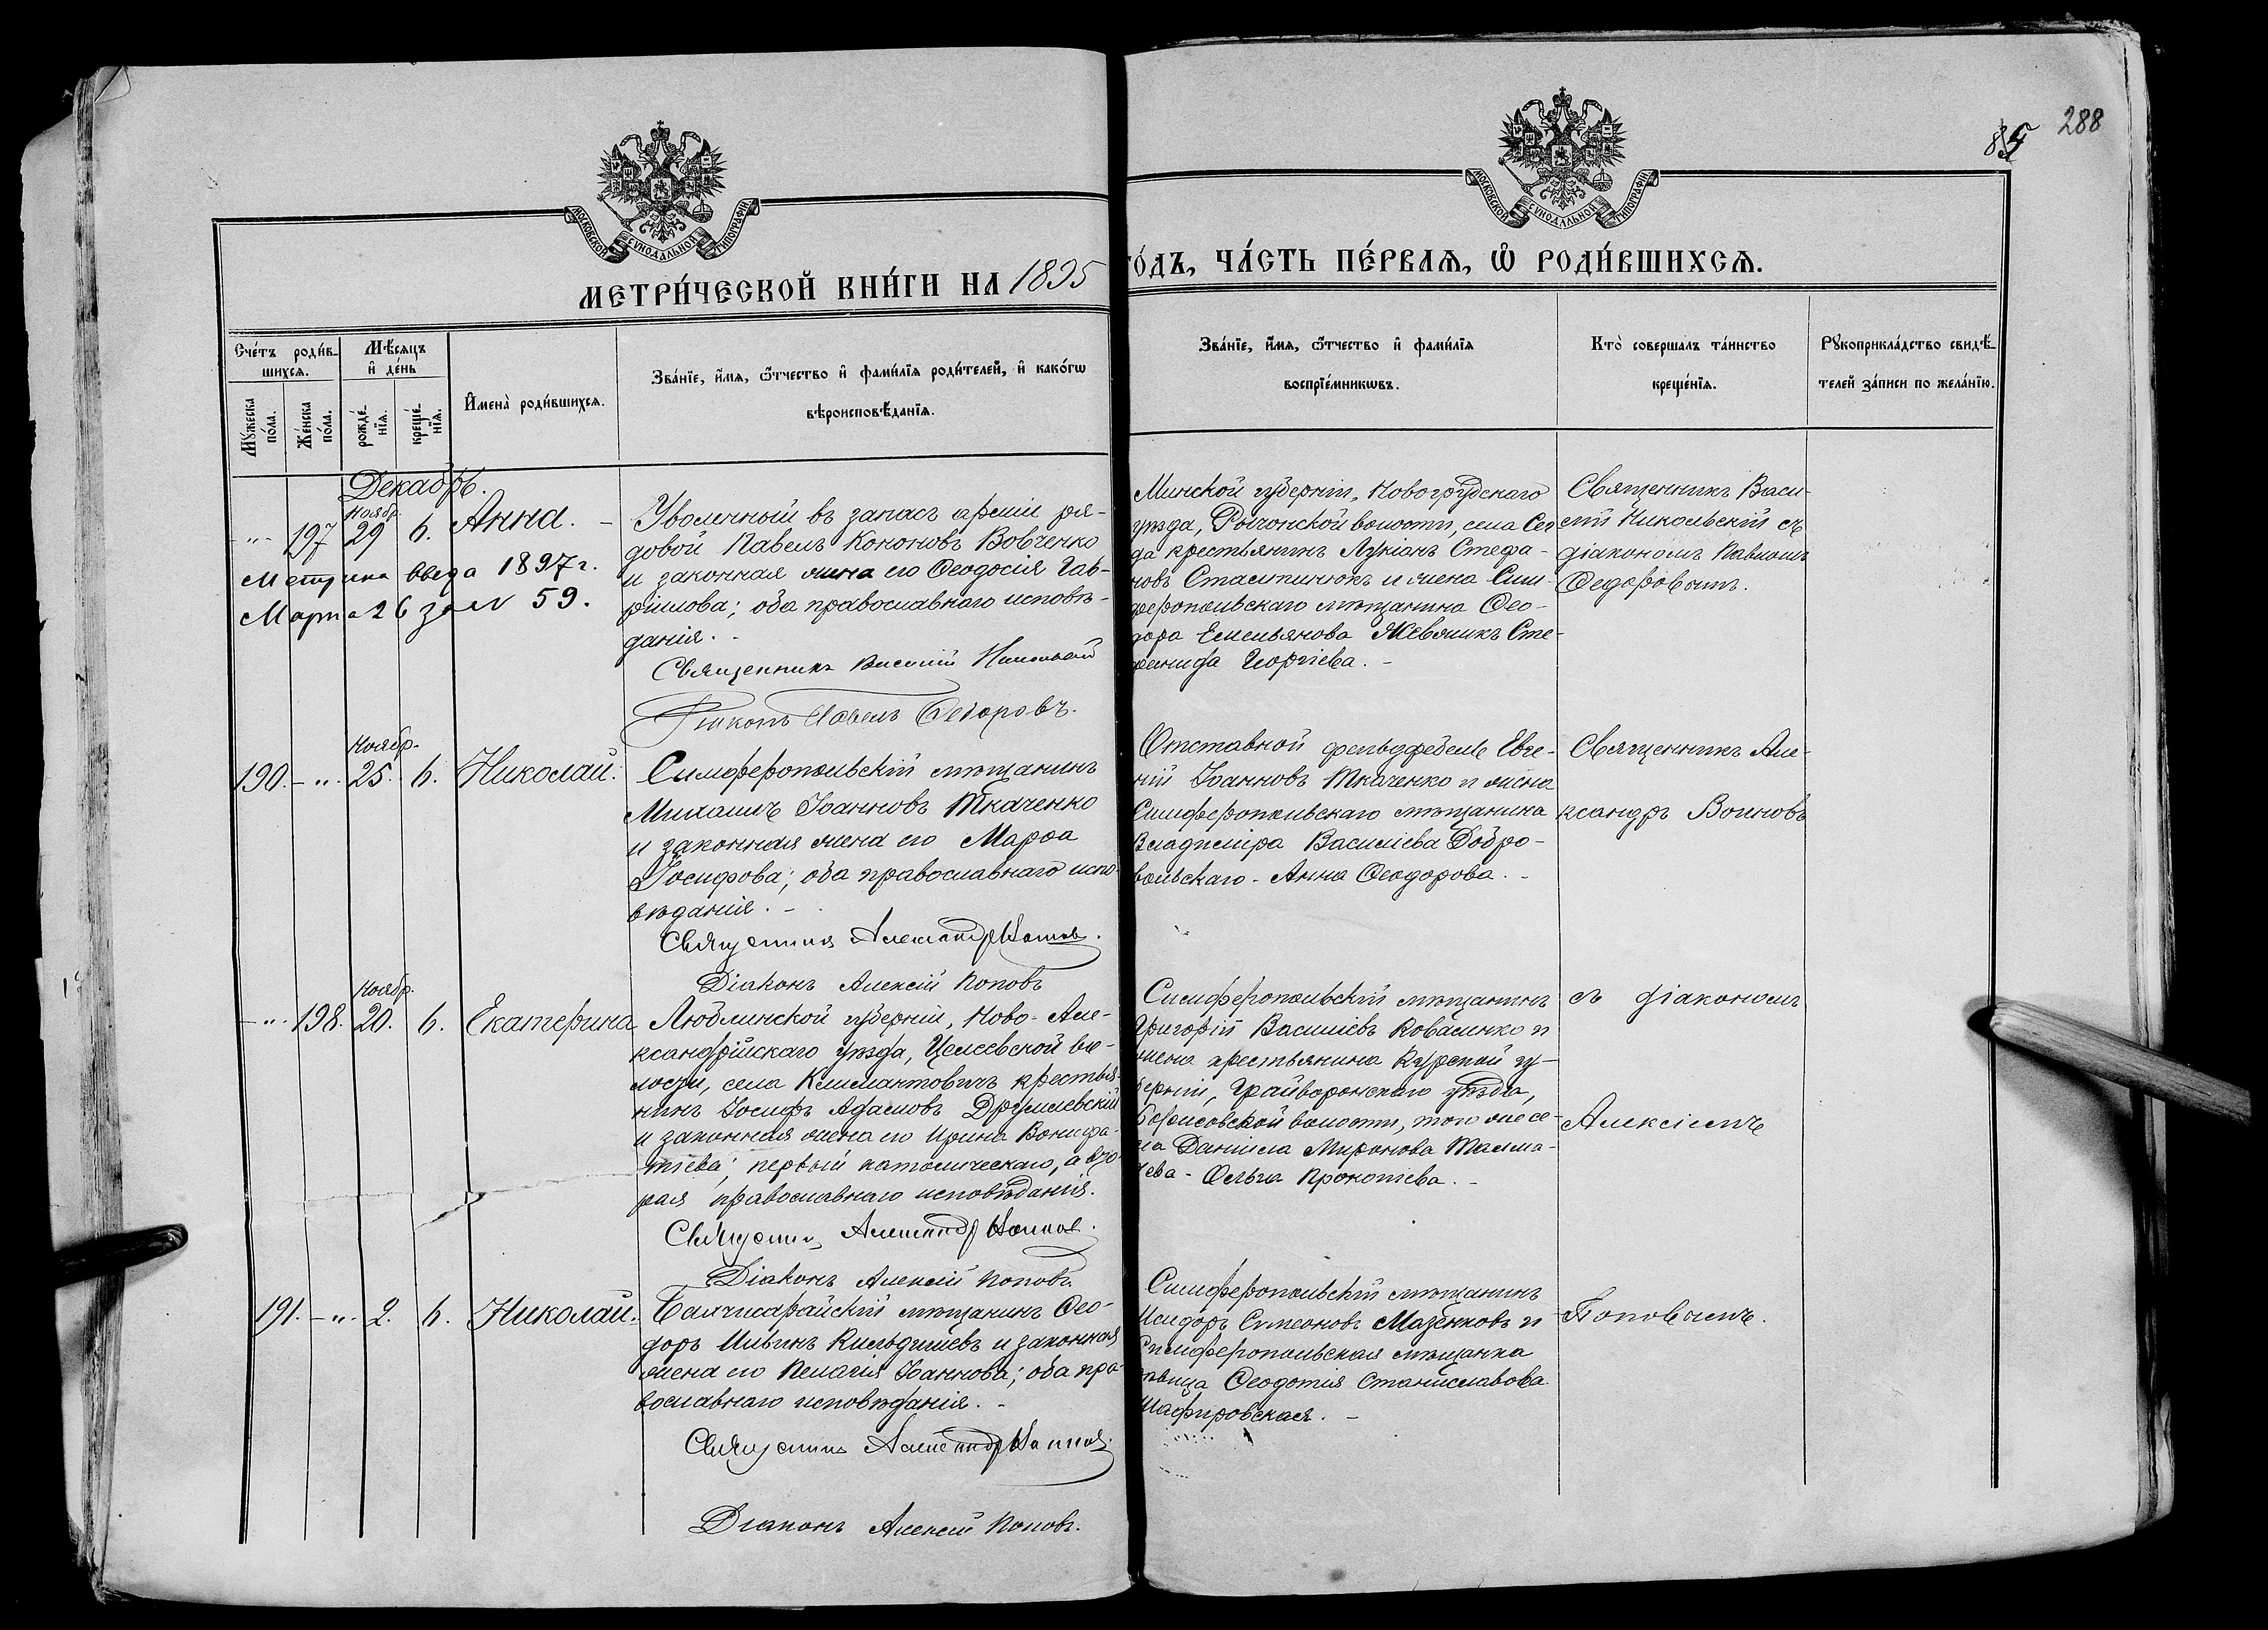 288
85
МОСКОВСКОЙ СѴНОДАЛЬНОЙ ТИПОГРАФІИ
МОСКОВСКОЙ СѴНОДАЛЬНОЙ ТИПОГРАФІИ
МЕТРИ́ЧЕСКОЙ КНИ́ГИ НА 1895
ГО́ДЪ, ЧА́СТЬ ПЕ́РВАѦ, Ѡ҆ РОДИ́ВШИХСѦ.
Сче́тъ роди́в-
шихсѧ.
Мѣ́сѧцъ
и҆ де́нь
Мꙋ́жеска
по́ла.
Же́нска
по́ла.
рожде́-
нїѧ.
креще́-
нїѧ.
И҆мена̀ роди́вшихсѧ.
Зва́нїе, и҆́мѧ, ѻ҆́тчество и҆ фами́лїѧ роди́телей, и҆ како́гѡ
вѣроисповѣ́данїѧ.
Зва́нїе, и҆́мѧ, ѻ҆́тчество и҆ фами́лїѧ
воспрїе́мникѡвъ.
Кто̀ соверша́лъ та́инство
креще́нїѧ.
Рꙋкоприкла́дство свидѣ́-
телей за́писи по жела́нїю.
Декабрь.
Ноябр.
-"- 197 29 6. Анна. -
Метрика выда 1897 г.
Марта 26 за N 59.
Уволенный въ запасъ арміи ря-
довой Павелъ Кононовъ Вовченко
и законная жена его Ѳеодосія Гав-
ріилова; оба православнаго исповѣ-
данія. -
Священникъ Василій Никольскій
Діаконъ Павелъ Ѳедоровъ.
Минской губерніи, Новогрудскаго
уѣзда, волости, села
да крестьянинъ Лукіанъ Стефа-
новъ и жена Сим-
феропольскаго мѣщанина Ѳео-
дора Емельянова Жевжикъ Сте-
фанида Георгіева. -
Священникъ Васи-
лій Никольскій съ
діакономъ Павломъ
Ѳедоровымъ.
Ноябр.
190. - "- 25. 6. Николай.
Симферопольскій мѣщанинъ
Михаилъ Іоанновъ Ткаченко
и законная жена его Марѳа
Іосифова; оба православнаго испо-
вѣданія. -
Священникъ Александръ Воиновъ.
Діаконъ Алексій Поповъ
Отставной фельдфебель Евге-
ній Іоанновъ Ткаченко и жена
Симферопольскаго мѣщанина
Владиміра Василіева Добро-
вольскаго - Анна Ѳеодорова. -
Священникъ Але-
ксандръ Воиновъ
Ноябр.
-"- 198. 20. 6. Екатерина
Люблинской губерніи, Ново-Але-
ксандрійскаго уѣзда, Целеевской во-
лости, села Клемантовичъ крестья-
нинъ Іосифъ Адамовъ Држилевскій
и законная жена его Ирина Вонифа-
тіева; первый католическаго, а вто-
рая православнаго исповѣданія.
Священникъ Александръ Воиновъ.
Діаконъ Алексій Поповъ.
Симферопольскій мѣщанинъ
Григорій Василіевъ Коваленко и
жена крестьянина Курской гу-
берніи, Грайворонскаго уѣзда,
Борисовской волости, того же се-
ла Даніила Миронова Толма-
чева - Ольга Прокопіева. -
съ діакономъ
Алексіемъ
191. - "- 2. 6. Николай.
Бахчисарайскій мѣщанинъ Ѳео-
доръ Ильинъ Кильдишевъ и законная
жена его Пелагія Іоаннова; оба пра-
вославнаго исповѣданія. -
Священникъ Александръ Воиновъ.
Діаконъ Алексій Поповъ.
Симферопольскій мѣщанинъ
Исидоръ Симеоновъ Мазенковъ и
Симферопольская мѣщанка
дѣвица Ѳеодотія Станиславова
Шафировская. -
Поповымъ.